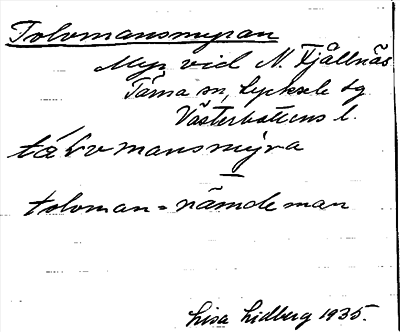 Tolvmansmyran
Myr vid N. Fjällnäs
Tärna sn, Lycksele lg
Västerbottens l.
tålvmansmýra
tolvman = nämdeman
Lisa Lidberg 1935.